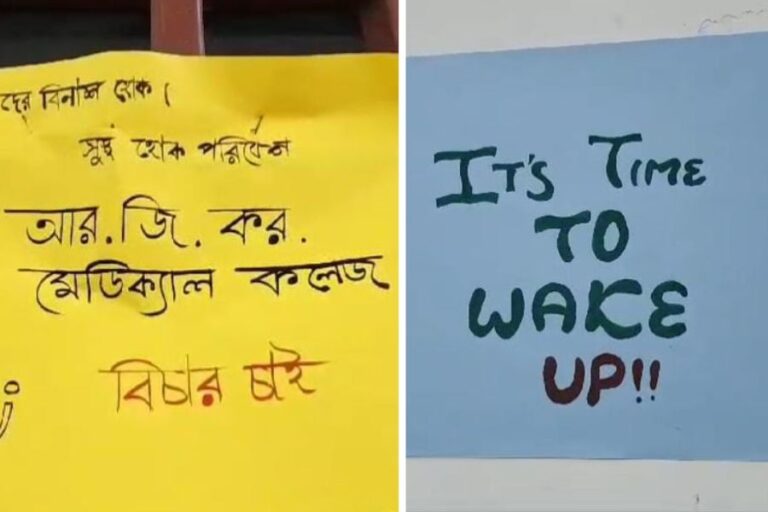 বিনাশ হোক।
সুস্থ হোক পরিবেশ
আর.জি. কর.
মেডিক্যাল কলেজ
বিচার চাই
IT'S TIME
TO
WAKE
UP!!